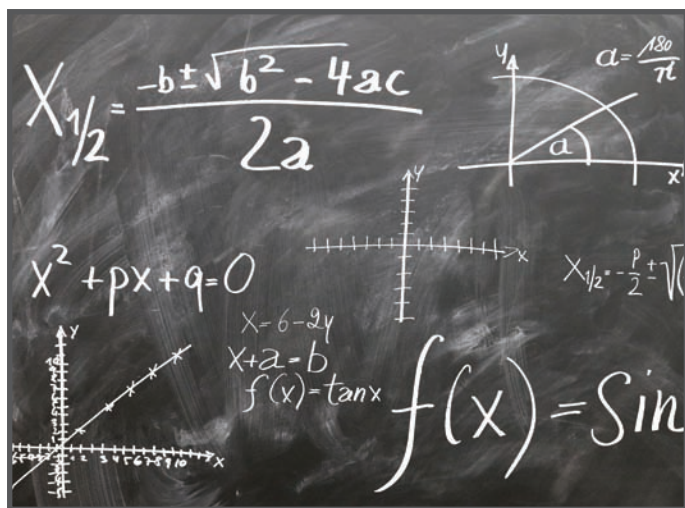 X₁/₂ = (-b ± √(b² - 4ac)) / 2a
y
a = 180/π
a
x
y
x
x² + px + q = 0
X₁/₂ = -p/2 ± √(
x = 6 - 2y
x + a = b
f(x) = tanx
f(x) = Sin
y
1 2 3 4 5 6 7 8 9 10
x